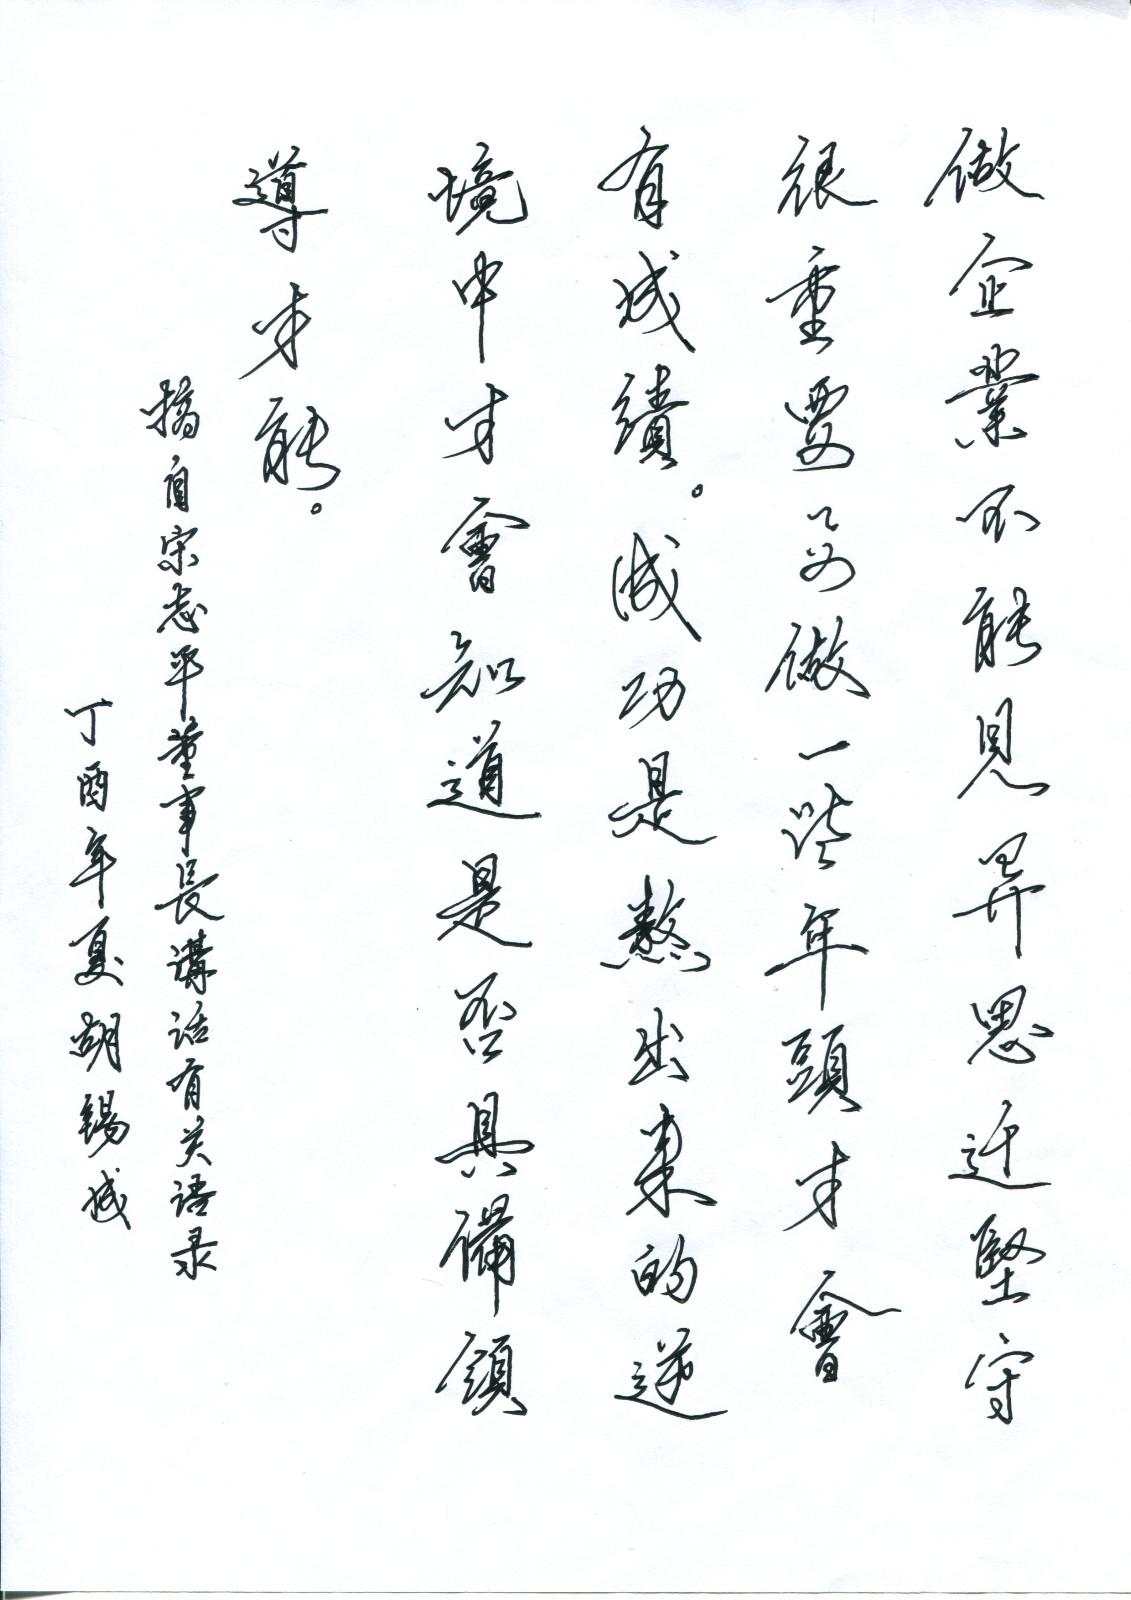 做企業不能見異思迁堅守
很重要只要做一些年頭才會
有成績。成功是熬出来的逆
境中才會知道是否具備領
導才能。
摘自宋志平董事長講话有关语录
丁酉年夏胡錫成